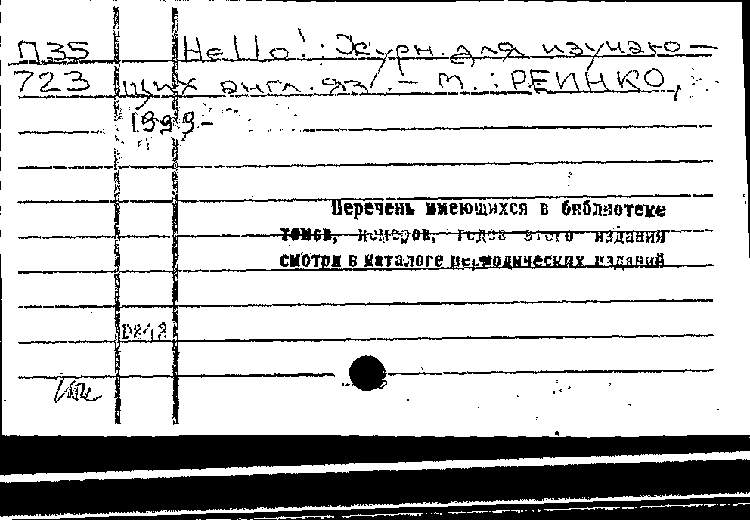 П35 Hello!: Журн. для изучаю-
723 щих англ. яз. - М.: РЕИНКО,
1999-
Перечень имеющихся в библиотеке
томов, номеров, годов этого издания
смотри в каталоге периодических изданий